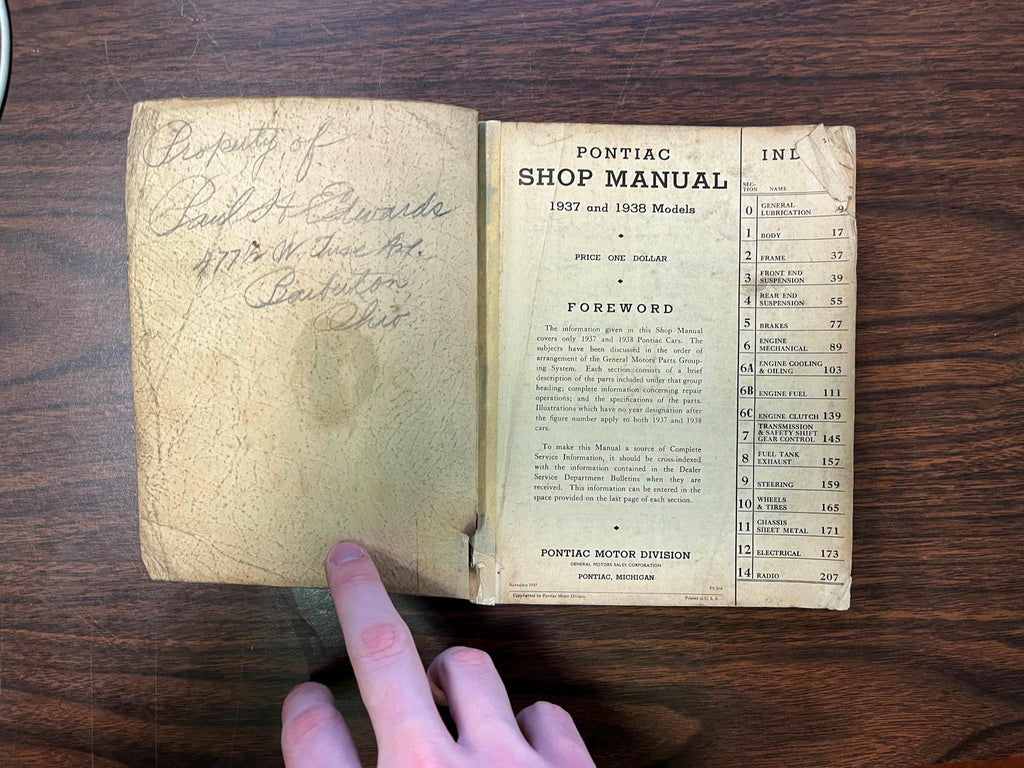 Property of
Paul H Edwards
W. Ave.
Barberton,
Ohio
PONTIAC
SHOP MANUAL
1937 and 1938 Models
PRICE ONE DOLLAR
FOREWORD
The information given in this Shop Manual
covers only 1937 and 1938 Pontiac Cars. The
subjects have been discussed in the order of
arrangement of the General Motors Parts Group-
ing System. Each section consists of a brief
description of the parts included under that group
heading; complete information concerning repair
operations; and the specifications of the parts.
Illustrations which have no year designation after
the figure number apply to both 1937 and 1938
cars.
To make this Manual a source of Complete
Service Information, it should be cross-indexed
with the information contained in the Dealer
Service Department Bulletins when they are
received. This information can be entered in the
space provided on the last page of each section.
PONTIAC MOTOR DIVISION
GENERAL MOTORS SALES CORPORATION
PONTIAC, MICHIGAN
November 1937
Copyrighted by Pontiac Motor Division Printed in U. S. A.
IND
SEC-
TION NAME
0 GENERAL
LUBRICATION 9
1 BODY 17
2 FRAME 37
3 FRONT END
SUSPENSION 39
4 REAR END
SUSPENSION 55
5 BRAKES 77
6 ENGINE
MECHANICAL 89
6A ENGINE COOLING
& OILING 103
6B ENGINE FUEL 111
6C ENGINE CLUTCH 139
7 TRANSMISSION
& SAFETY SHIFT
GEAR CONTROL 145
8 FUEL TANK
EXHAUST 157
9 STEERING 159
10 WHEELS
& TIRES 165
11 CHASSIS
SHEET METAL 171
12 ELECTRICAL 173
14 RADIO 207